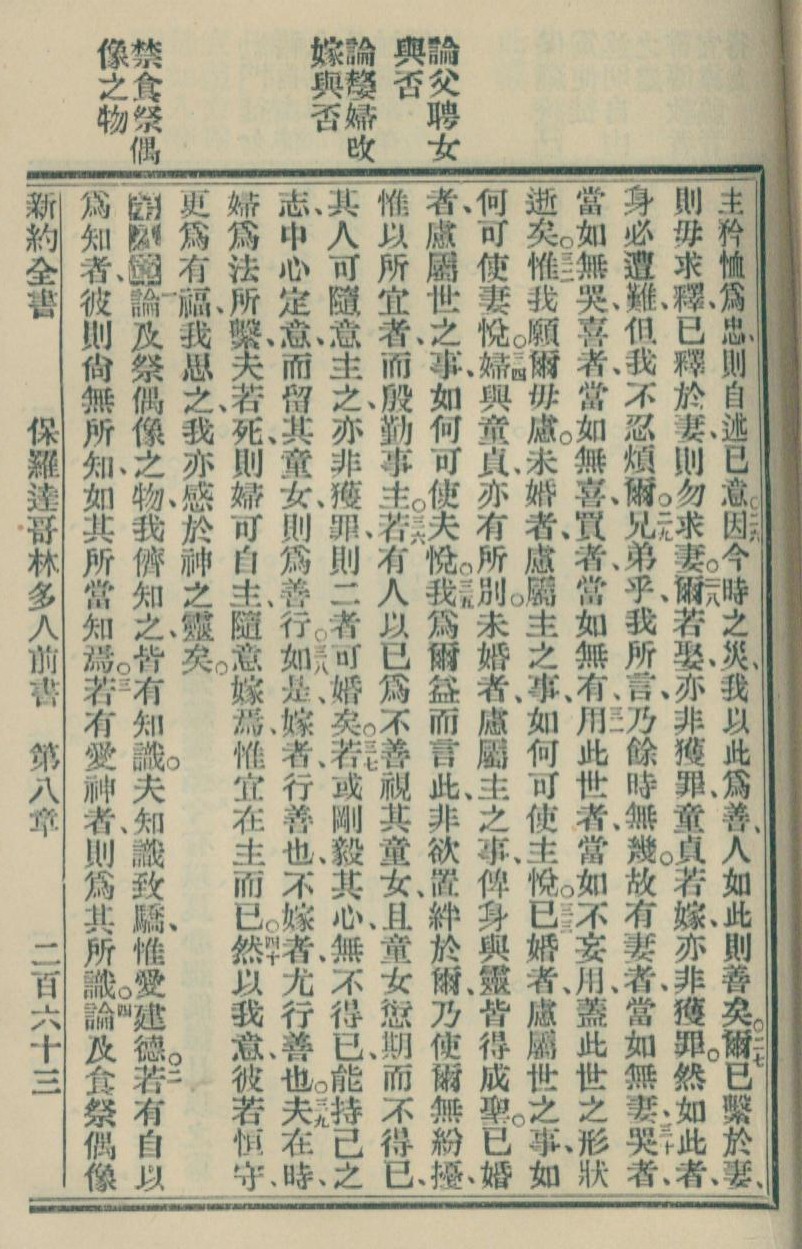 論父聘女
與否
論嫠婦改
嫁與否
禁食祭偶
像之物
主矜恤爲忠、則自述已意○二六因今時之災、我以此爲善、人如此則善矣○二七爾已繫於妻、
則毋求釋、已釋於妻、則勿求妻○二八爾若娶、亦非獲罪、童貞若嫁、亦非獲罪。然如此者、
身必遭難、但我不忍煩爾○二九兄弟乎、我所言、乃餘時無幾。故有妻者、當如無妻、三十哭者、
當如無哭、喜者、當如無喜、買者、當如無有、三一用此世者、當如不妄用、蓋此世之形狀
逝矣○三二惟我願爾毋慮。未婚者、慮屬主之事、如何可使主悅○三三已婚者、慮屬世之事、如
何可使妻悅○三四婦與童貞、亦有所別。未婚者、慮屬主之事、俾身與靈皆得成聖。已婚
者、慮屬世之事、如何可使夫悅○三五我爲爾益而言此、非欲置絆於爾、乃使爾無紛擾、
惟以所宜者、而殷勤事主○三六若有人以已爲不善視其童女、且童女愆期而不得已、
其人可隨意主之、亦非獲罪、則二者可婚矣○三七若或剛毅其心、無不得已、能持己之
志、中心定意、而留其童女、則爲善行○三八如是、嫁者、行善也、不嫁者、尤行善也○三九夫在時、
婦爲法所繫、夫若死、則婦可自主、隨意嫁焉、惟宜在主而已○四十然以我意、彼若恒守、
更爲有福、我思之、我亦感於神之靈矣。
一論及祭偶像之物、我儕知之、皆有知識。夫知識致驕、惟愛建德○二若有自以
爲知者、彼則尙無所知、如其所當知焉○三若有愛神者、則爲其所識○四論及食祭偶像
新約全書　保羅達哥林多人前書　第八章　二百六十三